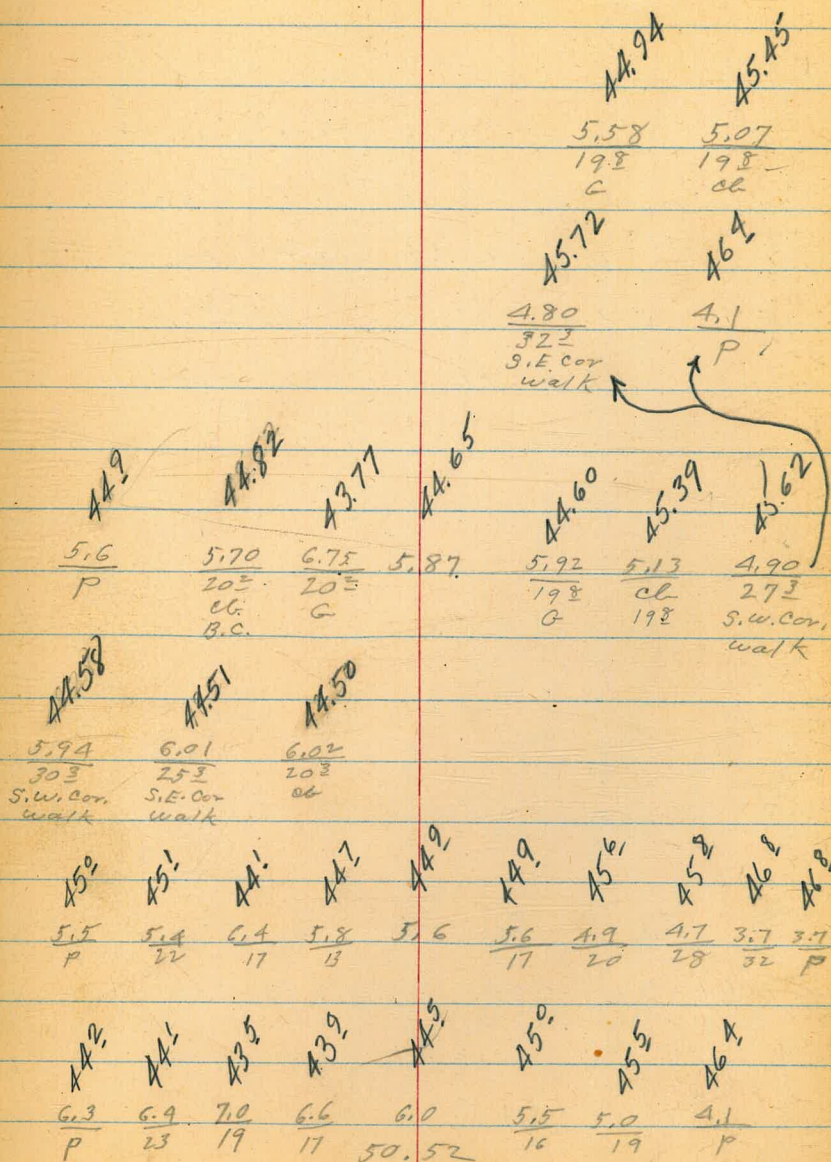 44.94 45.45
5.58 5.07
19 8 19 8
G cb
45.72 46 4
4.80 4.1
32 3 P
S.E. Cor
walk
44 9 44.82 43.77 44.65 44.60 45.39 45.62
5.6 5.70 6.75 5.87 5.92 5.13 4.90
P 20 2 20 2 19 8 cb 27 3
cb G G 19 8 S.W. Cor.
B.C. walk
44.58 44.51 44.50
5.94 6.01 6.02
30 3 25 3 20 3
S.W. Cor. S.E. Cor cb
walk walk
45 0 45 1 44 1 44 7 44 9 44 9 45 6 45 8 46 8 46 8
5.5 5.4 6.4 5.8 5.6 5.6 4.9 4.7 3.7 3.7
P 22 17 13 17 20 28 32 P
44 2 44 1 43 5 43 9 44 5 45 0 45 5 46 4
6.3 6.4 7.0 6.6 6.0 5.5 5.0 4.1
P 23 19 17 16 19 P
50.52